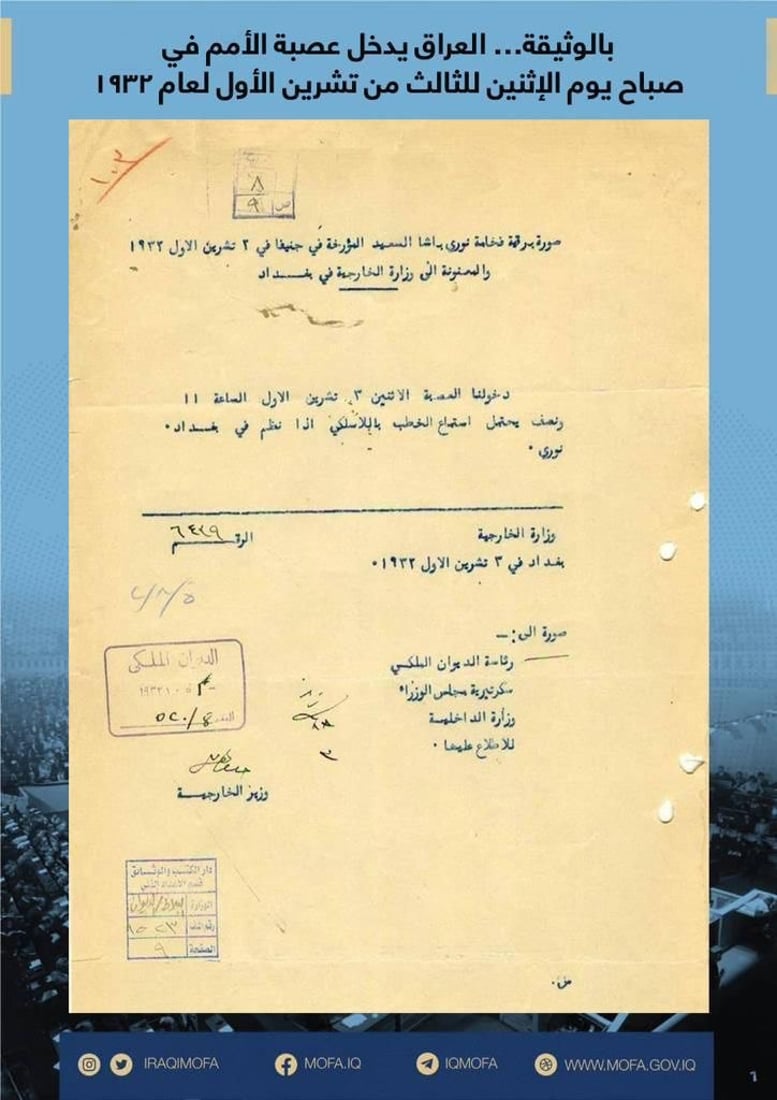 بالوثيقة... العراق يدخل عصبة الأمم في
صباح يوم الإثنين للثالث من تشرين الأول لعام ١٩٣٢
١٠٣
٨
ص ٩
صورة برقية فخامة نوري باشا السعيد المؤرخة في جنيفا في ٢ تشرين الاول ١٩٣٢
والمعنونة الى وزارة الخارجية في بغـــداد
دخولنا العصبة الاثنين ٣ تشرين الاول الساعة ١١
ونصف يحتمل استماع الخطب باللاسلكي اذا نظم في بغـداد.
نوري.
وزارة الخارجية
الرقـــم ٦٤٢٩
بغداد في ٣ تشرين الاول ١٩٣٢.
صورة الى:ـ
رئاسة الديوان الملكـي
سكرتيرية مجلس الوزراء
وزارة الداخليـة
للاطلاع عليهـا.
الديوان الملكي
وزير الخارجيـــة
دار الكتب والوثائق
الوزارة
رقم الملف
الصفحة ٩
ص.
IRAQIMOFA
MOFA.IQ
IQMOFA
WWW.MOFA.GOV.IQ